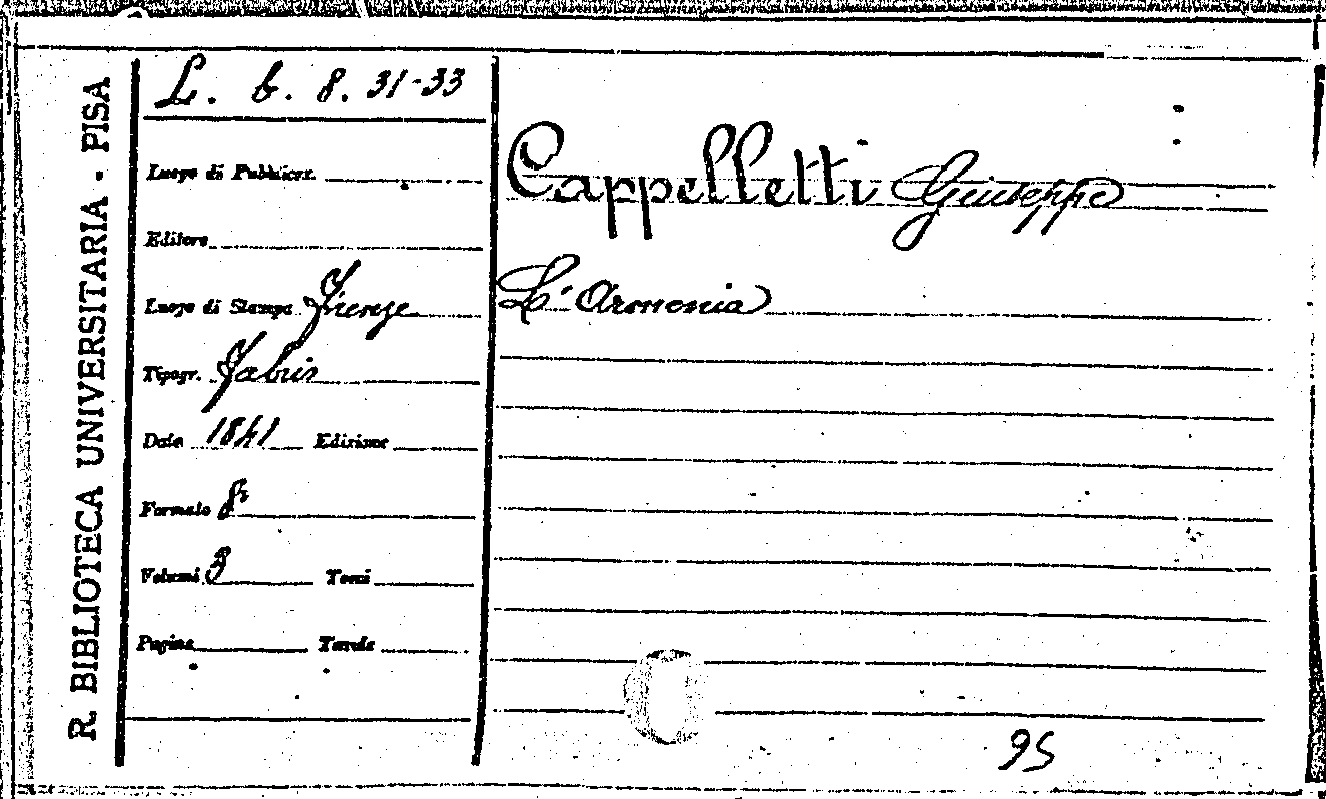 R. BIBLIOTECA UNIVERSITARIA - PISA
L. b. 8. 31-33
Luogo di Pubblicaz.
Editore
Luogo di Stampa Firenze
Tipogr. Fabris
Data 1841 Edizione
Formato 8°
Volumi 3 Tomi
Pagine Tavole
Cappelletti Giuseppe
L'Armonia
95